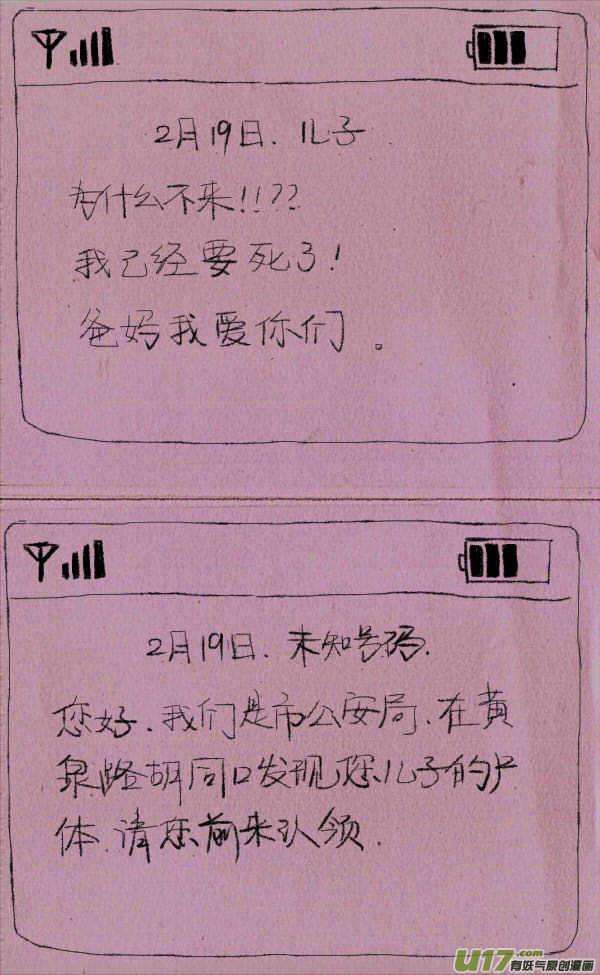 2月19日. 儿子
为什么不来!!??
我已经要死了!
爸妈我爱你们。
2月19日. 未知号码.
您好.我们是市公安局.在黄
泉路胡同口发现您儿子的尸
体.请您前来认领.
U17.com
有妖气原创漫画